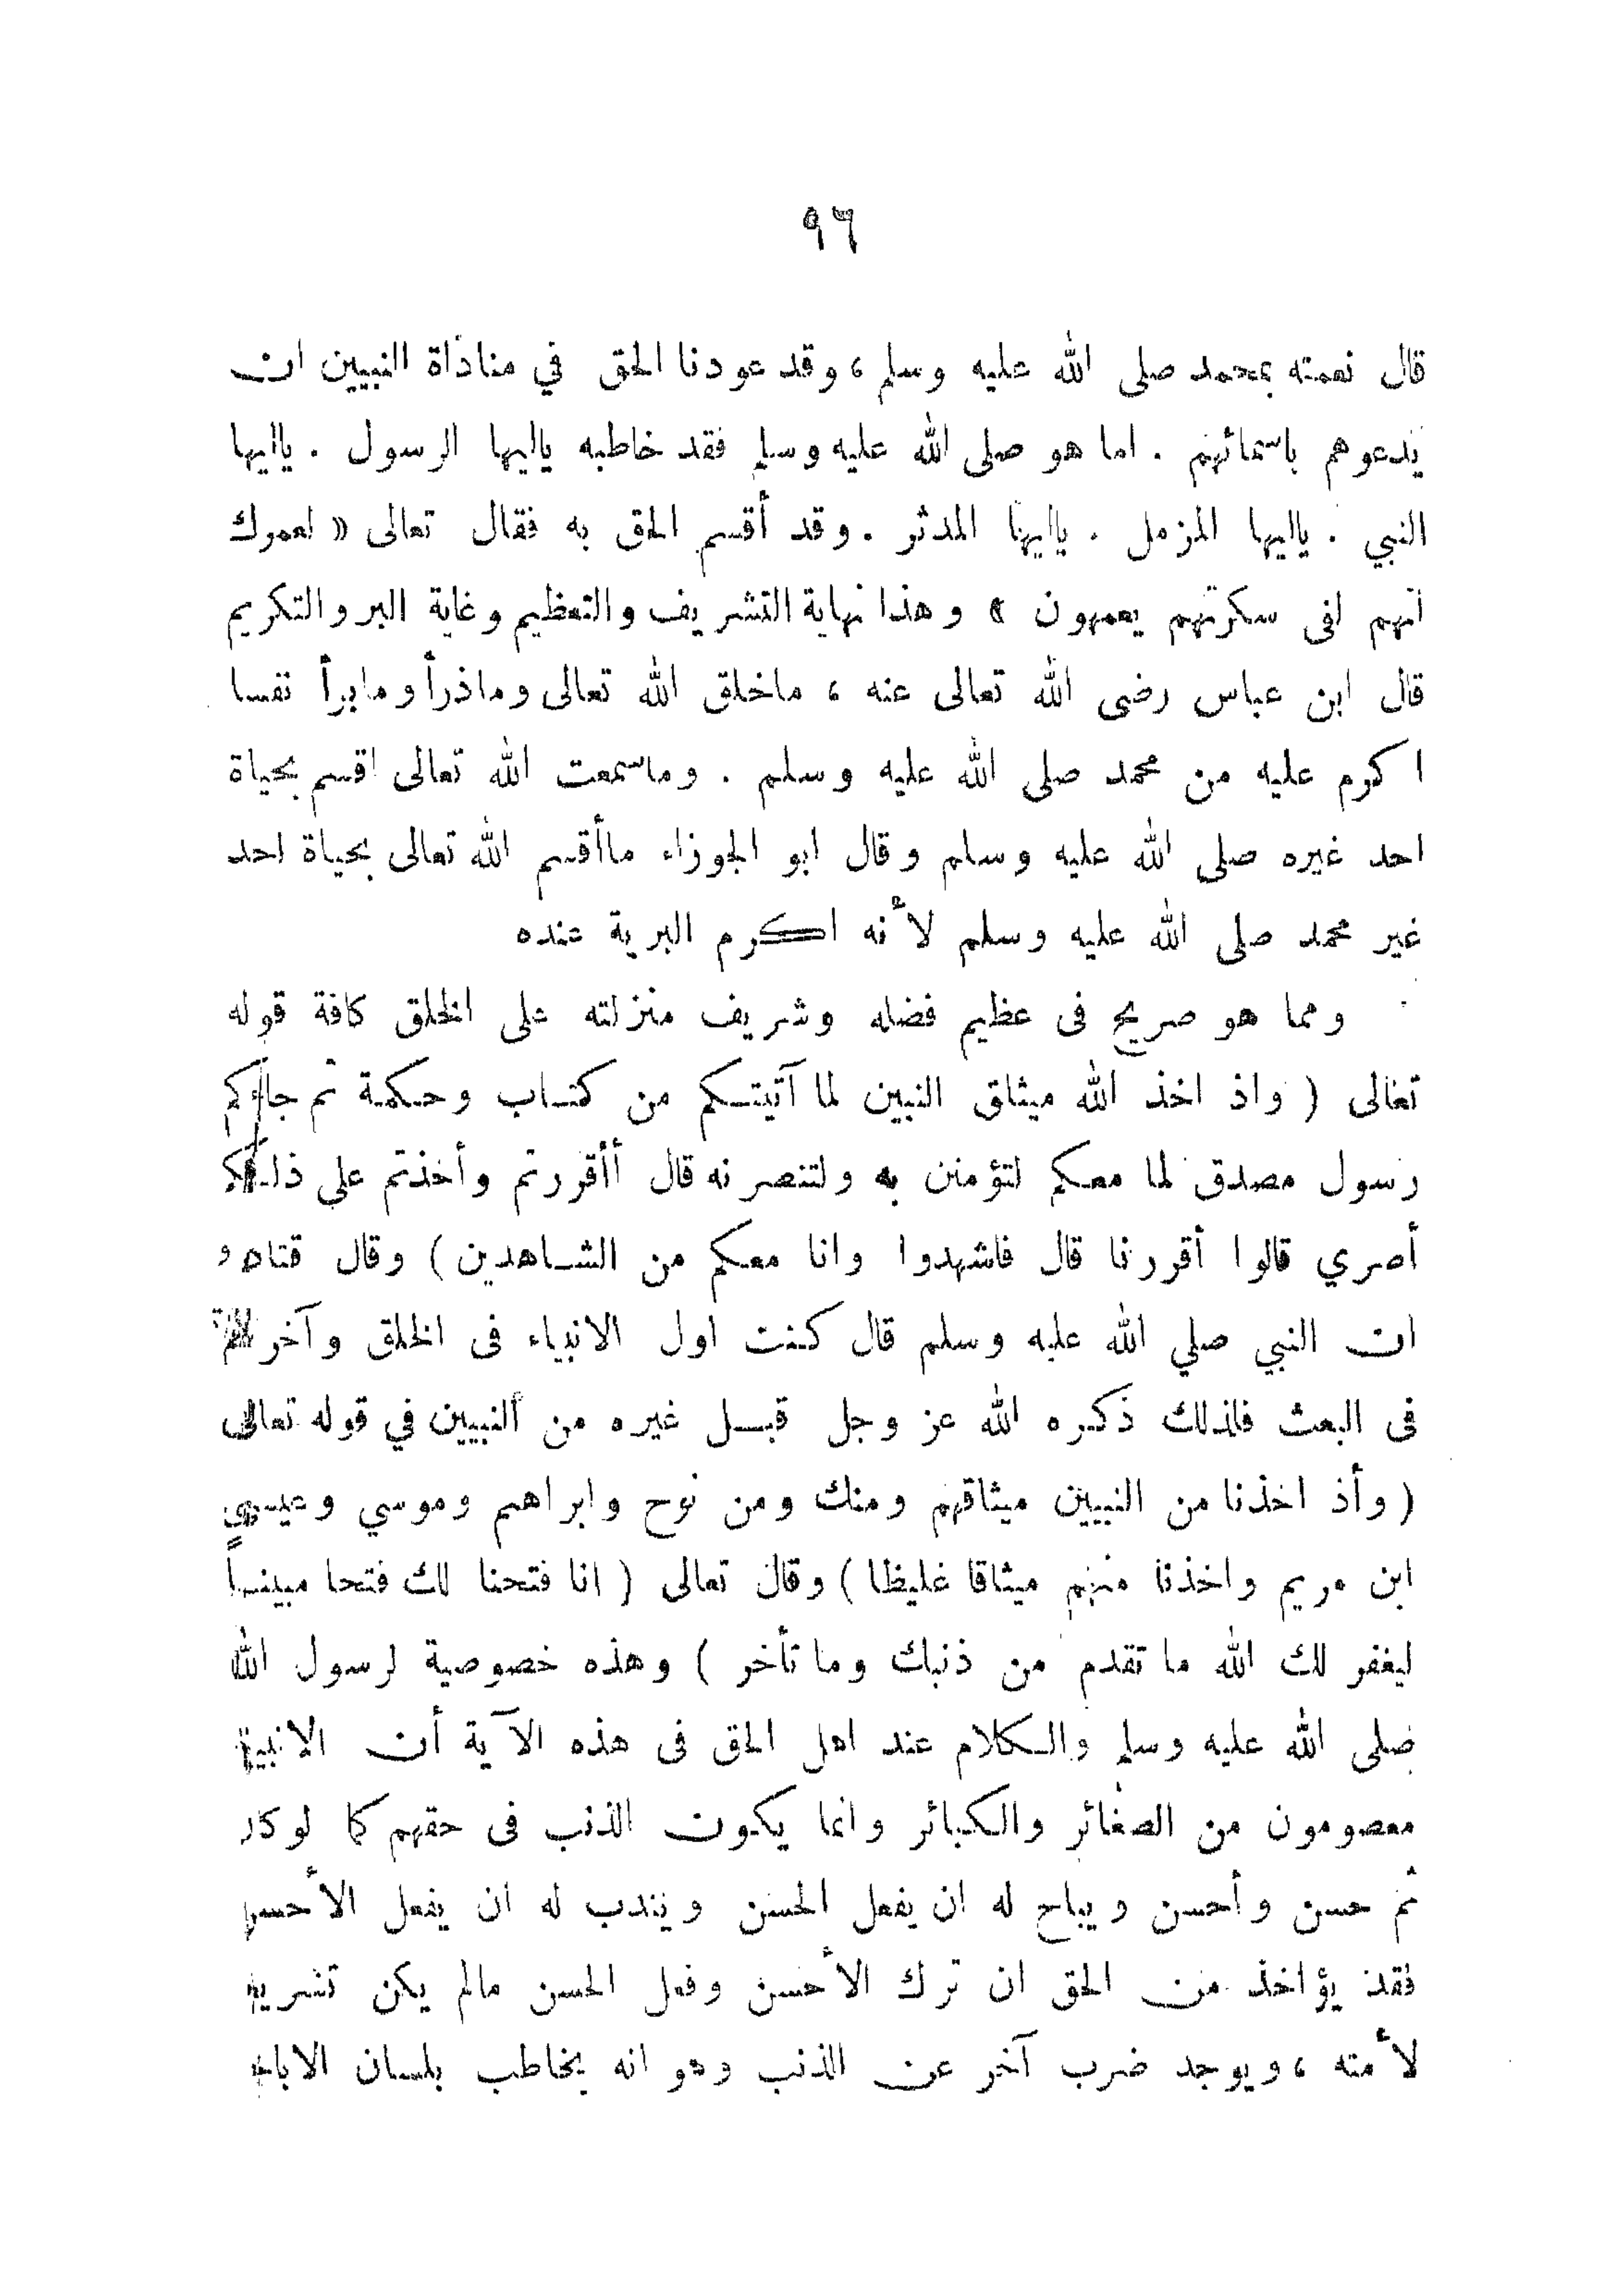 ٩٦
قال نعمته بمحمد صلى الله عليه وسلم ، وقد عودنا الحق في مناداة النبيين ان
يدعوهم باسمائهم . اما هو صلى الله عليه وسلم فقد خاطبه ياايها الرسول . ياايها
النبي . ياايها المزمل . ياايها المدثر . وقد أقسم الحق به فقال تعالى « لعمرك
انهم لفى سكرتهم يعمهون » وهذا نهاية التشريف والتعظيم وغاية البر والتكريم
قال ابن عباس رضى الله تعالى عنه ، ماخلق الله تعالى وماذرأ ومابرأ نفسا
اكرم عليه من محمد صلى الله عليه وسلم . وماسمعت الله تعالى اقسم بحياة
احد غيره صلى الله عليه وسلم وقال ابو الجوزاء ماأقسم الله تعالى بحياة احد
غير محمد صلى الله عليه وسلم لأنه اكرم البرية عنده
ومما هو صريح فى عظيم فضله وشريف منزلته على الخلق كافة قوله
تعالى ( واذ اخذ الله ميثاق النبين لما آتيتكم من كتاب وحكمة ثم جاءكم
رسول مصدق لما معكم لتؤمنن به ولتنصرنه قال أأقررتم وأخذتم على ذلكم
أصري قالوا أقررنا قال فاشهدوا وانا معكم من الشاهدين ) وقال قتاده
ان النبي صلي الله عليه وسلم قال كنت اول الانبياء فى الخلق وآخرهم
فى البعث فلذلك ذكره الله عز وجل قبل غيره من النبيين في قوله تعالى
( وأذ اخذنا من النبيين ميثاقهم ومنك ومن نوح وابراهيم وموسي وعيسى
ابن مريم واخذنا منهم ميثاقا غليظا ) وقال تعالى ( انا فتحنا لك فتحا مبيناً
ليغفر لك الله ما تقدم من ذنبك وما تأخر ) وهذه خصوصية لرسول الله
صلى الله عليه وسلم والكلام عند اهل الحق فى هذه الآية أن
معصومون من الصغائر والكبائر وانما يكون الذنب فى حقهم كما لو
ثم حسن وأحسن ويباح له ان يفعل الحسن ويندب له ان يفعل الأحسن
فقد يؤاخذ من الحق ان ترك الأحسن وفعل الحسن مالم يكن
لأمته ، ويوجد ضرب آخر عن الذنب وهو انه يخاطب بلسان